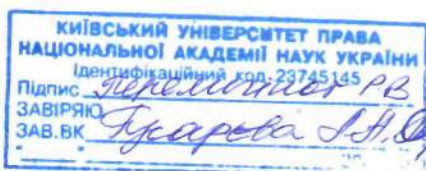 КИЇВСЬКИЙ УНІВЕРСИТЕТ ПРАВА
НАЦІОНАЛЬНОЇ АКАДЕМІЇ НАУК УКРАЇНИ
Ідентифікаційний код 23745145
Підпис Р В
ЗАВІРЯЮ
ЗАВ.ВК Гусарова